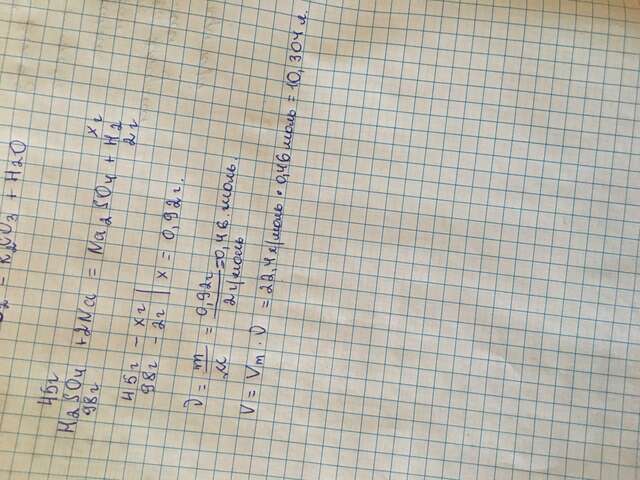 K2CO3 + H2O
45г xг
H2SO4 + 2Na = Na2SO4 + H2
98г 2г
45г – xг
98г – 2г | x = 0,92г.
ν = m/M = 0,92г/2г/моль = 0,46 моль.
V = Vm · ν = 22,4л/моль · 0,46 моль = 10,304 л.